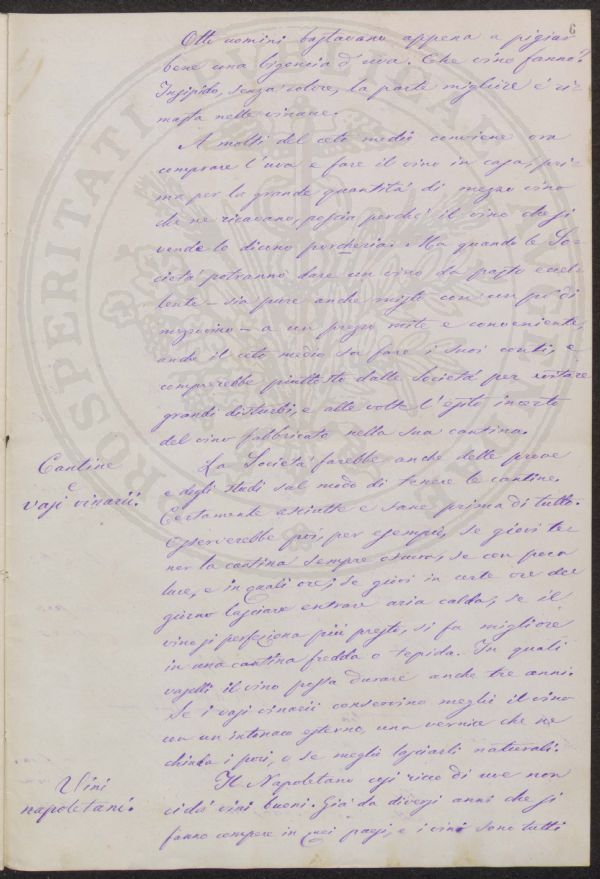 6
Otto uomini bastavano appena a pigiar
bene una bigoncia d'uva. Che vino fanno?
Insipido, senza colore, la parte migliore è ri-
masta nelle vinacce.
A molti del ceto medio conviene ora
comprare l'uva e fare il vino in casa, pri-
ma per la grande quantità di mezzo vino
che ne ricavano, poscia perchè il vino che si
vende lo dicono porcheria. Ma quando le So-
cietà potranno dare un vino da pasto eccel-
lente – sia pure anche misto con un po' di
mezzovino – a un prezzo mite e conveniente,
anche il ceto medio sa fare i suoi conti, e
comprerebbe piuttosto dalle Società per evitare
grandi disturbi, e alle volte l'esito incerto
del vino fabbricato nella sua cantina.
Cantine
e
vasi vinarii.
La Società farebbe anche delle prove
e degli studi sul modo di tenere le cantine.
Certamente asciutte e sane prima di tutto.
Osserverebbe poi, per esempio, se giovi te-
ner la cantina sempre oscura, se con poca
luce, e in quali ore; se giovi in certe ore del
giorno lasciare entrare aria calda; se il
vino si perfeziona più presto, si fa migliore
in una cantina fredda o tepida. In quali
vaselli il vino possa durare anche tre anni.
Se i vasi vinarii conservino meglio il vino
con un intonaco esterno, una vernice che ne
chiuda i pori, o se meglio lasciarli naturali.
Vini
napoletani.
Il Napoletano così ricco di uve non
ci dà vini buoni. Già da diversi anni che si
fanno compere in quei paesi, e i vini sono tutti
PROSPERITATI PUBLICAE AUGENDAE